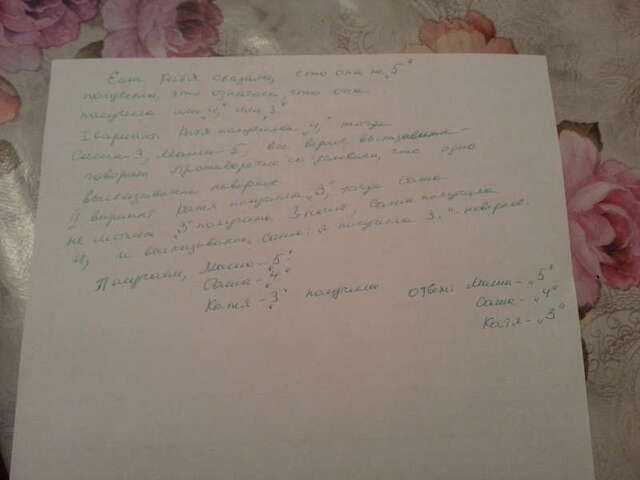 Если Катя сказала, что она не „5“
получила, это означает, что она
получила или „4“ или „3“.
I вариант Катя получила „4“, тогда
Саша-3, Маша-5, все верно
говорили противоречие с условием, что одно
высказывание неверное.
II вариант Катя получила „3“, тогда Саша
не может „3“ получить, Саша получила
4, и высказывание Саши: я получила 3.“- неверное.
Получаем, Маша-„5“
Саша-„4“
Катя-„3“ получили ответ: Маша-„5“
Саша-„4“
Катя-„3“